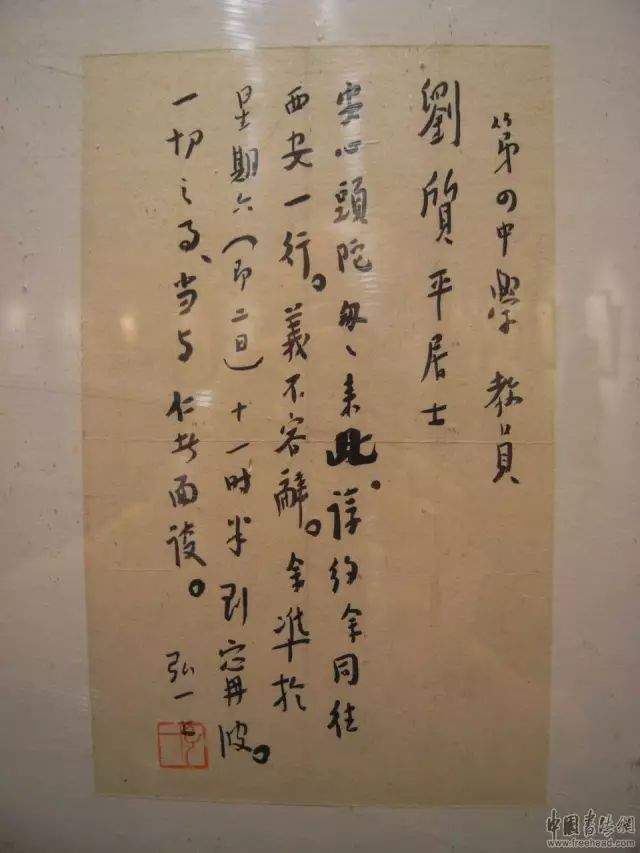 第四中學 教員
劉質平居士
安心頭陀匆匆来此。諄約余同往
西安一行。義不容辭。余準於
星期六(即二日)十一时半到寧波。
一切之事、当与仁者面談。
弘一
中國書法網
www.freehead.com